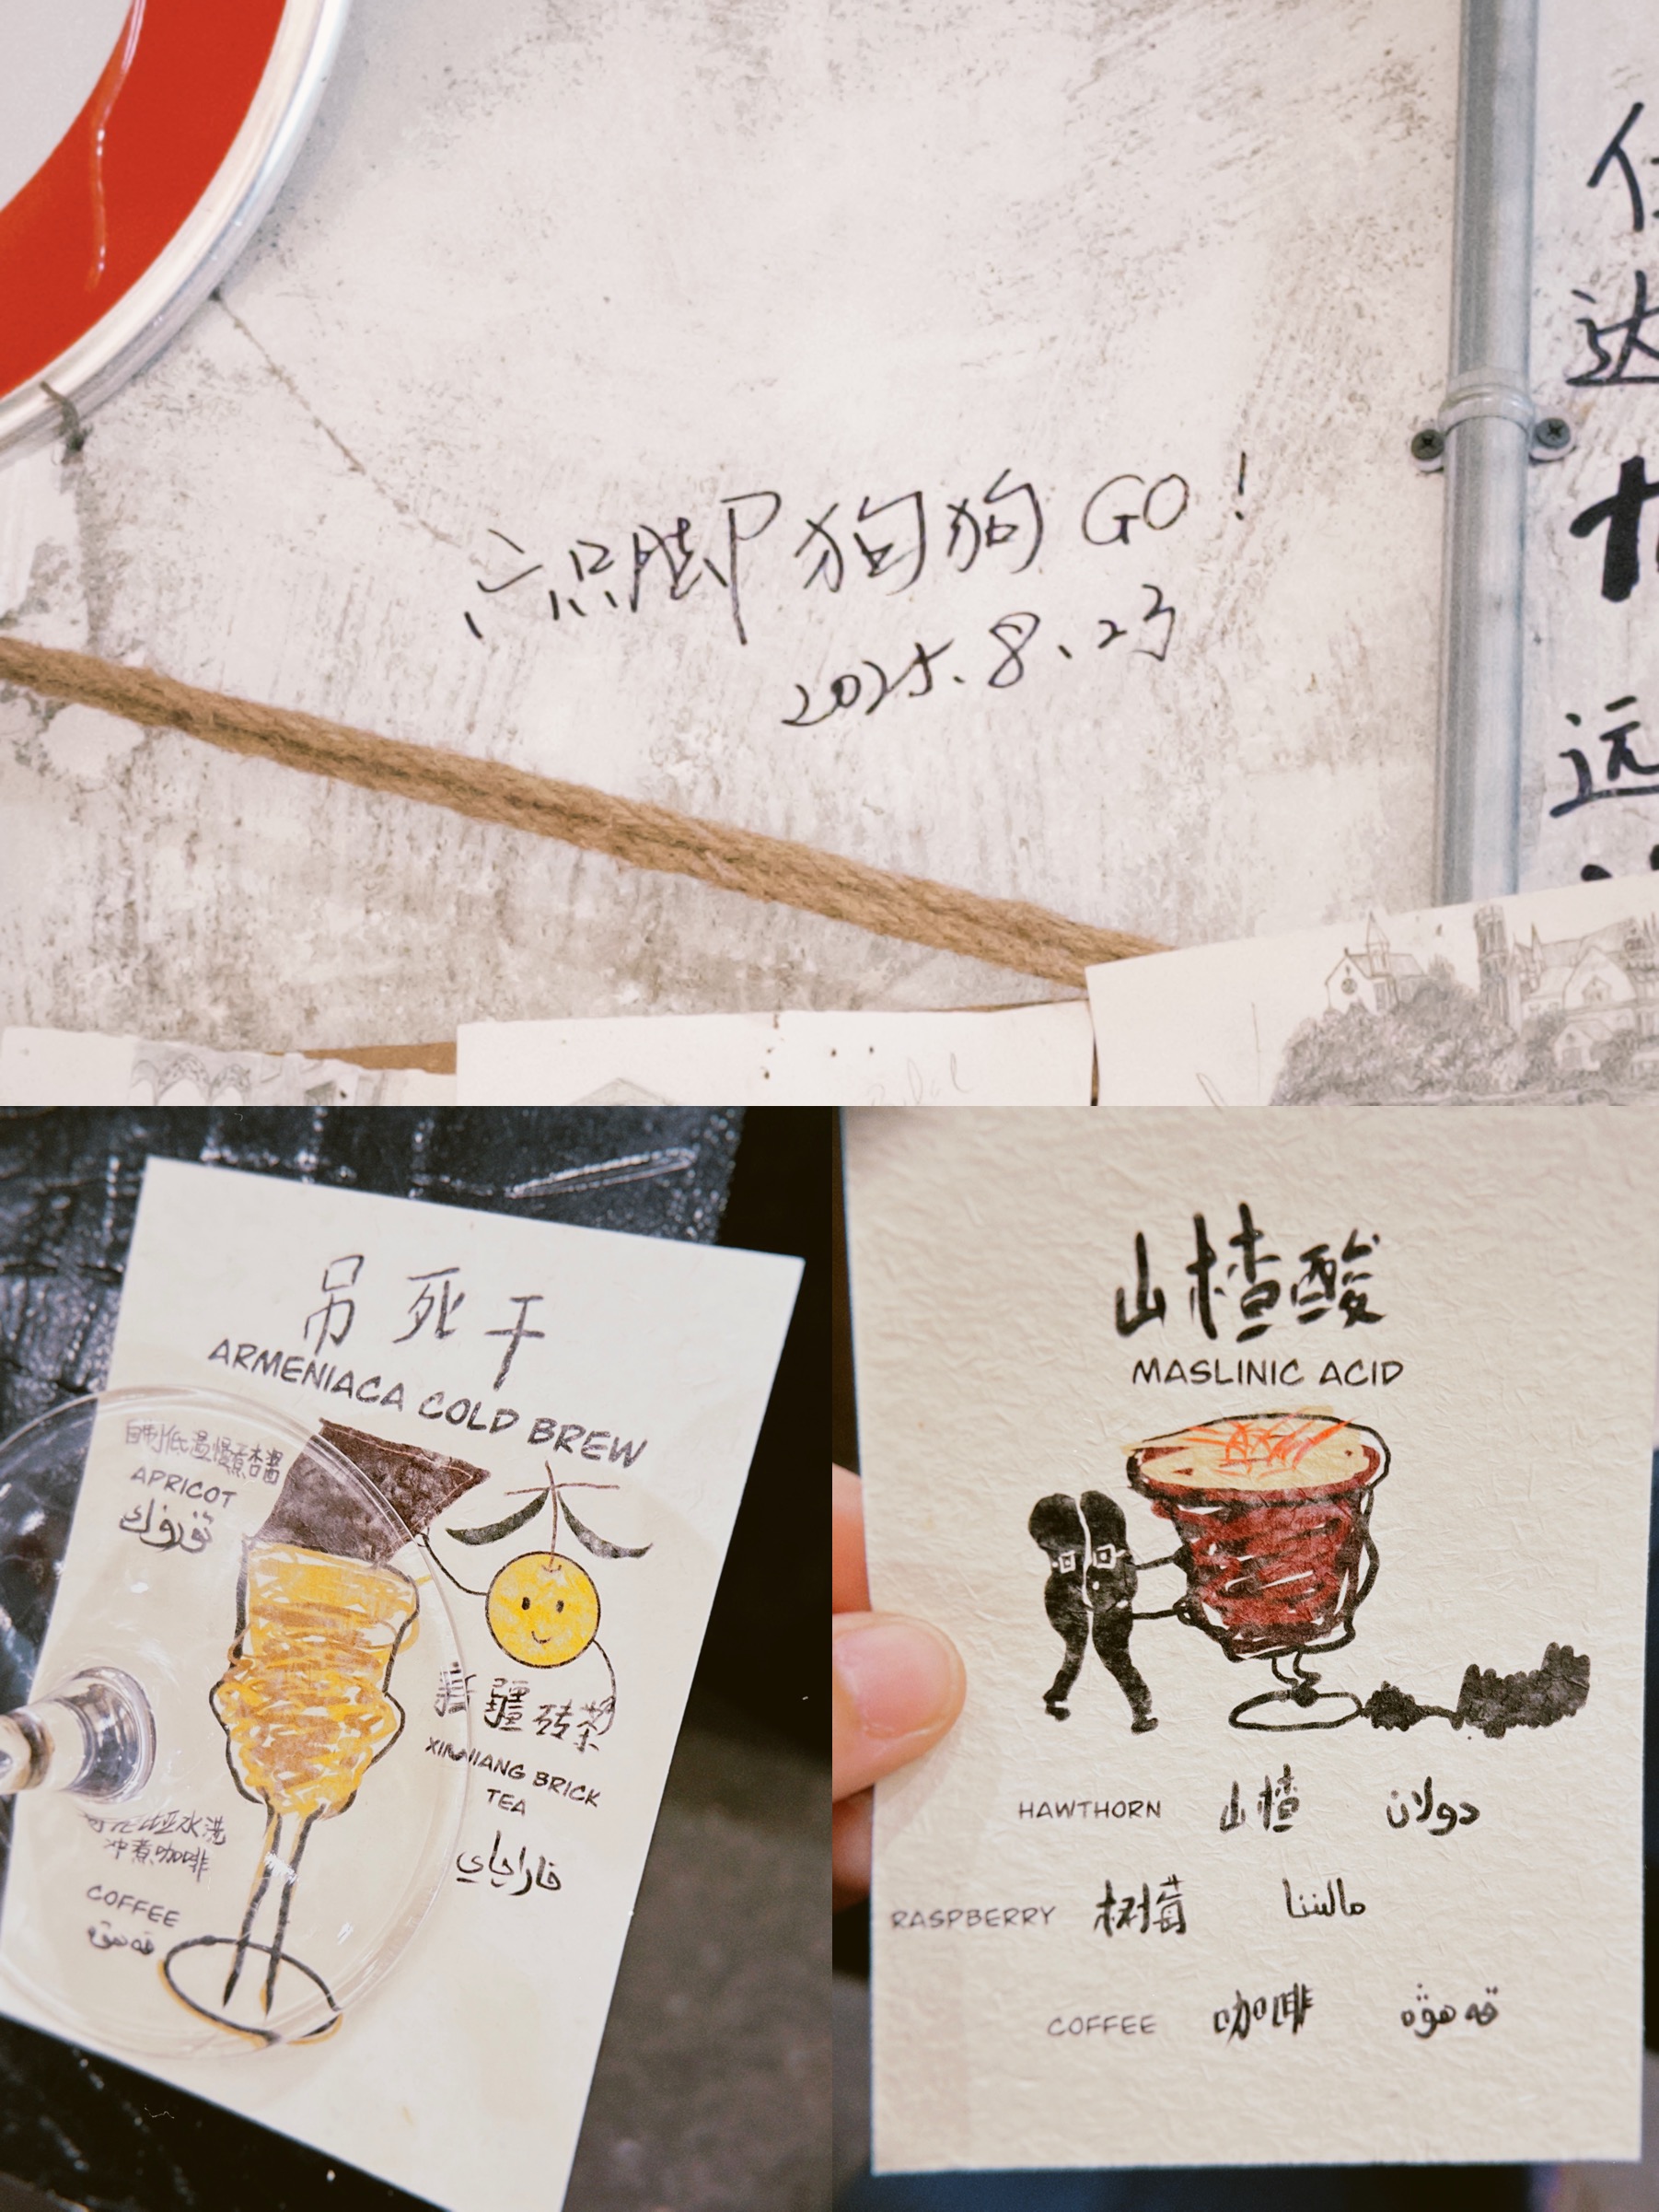 六只脚狗狗GO！
2025.8.23
达
远
吊死干
ARMENIACA COLD BREW
自制低温慢煮杏酱
APRICOT
新疆砖茶
XINJIANG BRICK
TEA
قاراچاي
水洗
冲煮咖啡
COFFEE
قەھۋە
山楂酸
MASLINIC ACID
HAWTHORN 山楂 دولان
RASPBERRY 树莓 مالىنا
COFFEE 咖啡 قەھۋە